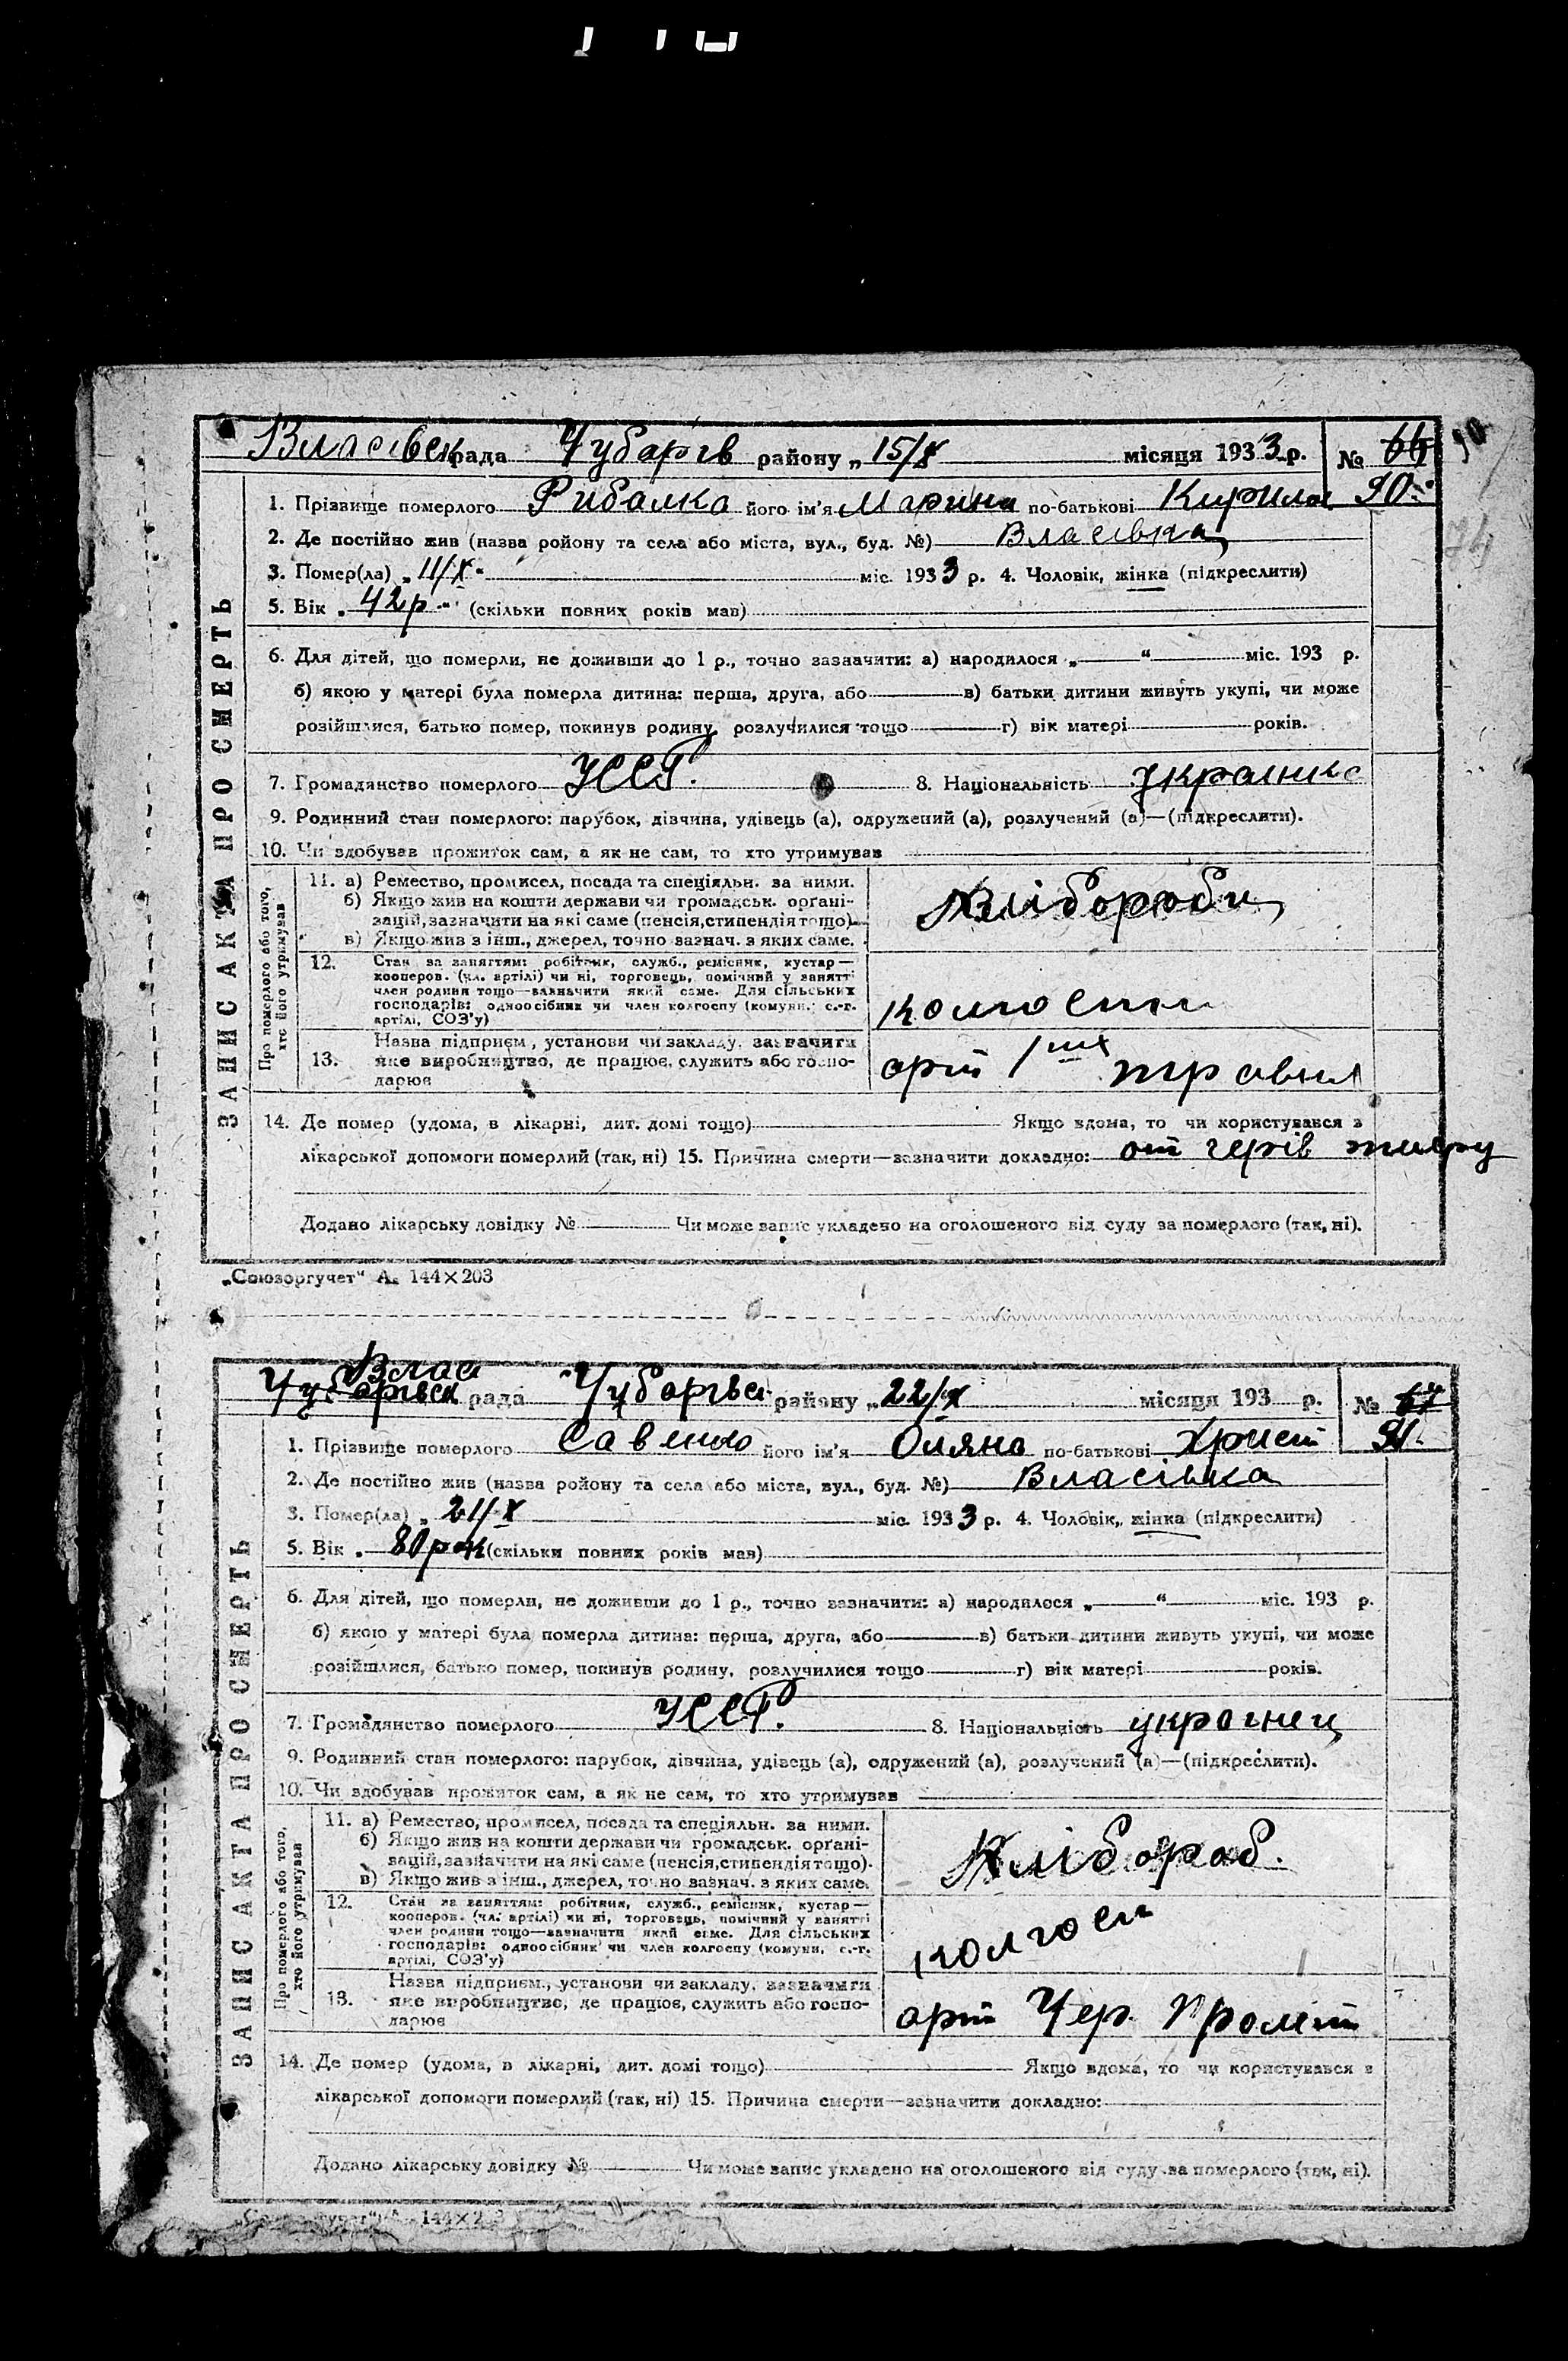 Власівськ рада Чубарів району „ 15/X місяця 1933 р. № 66
90
1. Прізвище померлого Рибалка його ім'я Марина по-батькові Кирилов
2. Де постійно жив (назва ройону та села або міста, вул., буд. №) Власівка
3. Помер(ла) „ 11/X " міс. 1933 р. 4. Чоловік, жінка (підкреслити)
5. Вік „ 42 р " (скільки повних років мав)
6. Для дітей, що померли, не доживши до 1 р., точно зазначити: а) народилося „ “ міс. 193 р.
б) якою у матері була померла дитина: перша, друга, або в) батьки дитини живуть укупі, чи може
розійшлися, батько помер, покинув родину, розлучилися тощо г) вік матері років.
7. Громадянство померлого УССР. 8. Національність украинка
9. Родинний стан померлого: парубок, дівчина, удівець (а), одружений (а), розлучений (а)—(підкреслити).
10. Чи здобував прожиток сам, а як не сам, то хто утримував
ЗАПИС АКТА ПРО СМЕРТЬ
Про померлого або того,
хто його утримував
11. а) Ремество, промисел, посада та спеціяльн. за ними.
б) Якщо жив на кошти держави чи громадськ. органі-
зацій, зазначити на які саме (пенсія, стипендія тощо).
в) Якщо жив з інш., джерел, точно зазнач. з яких саме.
Хлібороби
12. Стан за заняттям: робітник, служб., ремісник, кустар—
кооперов. (чл. артілі) чи ні, торговець, помічний у занятті
член родини тощо—зазначити який саме. Для сільських
господарів: одноосібник чи член колгоспу (комуни, с.-г.
артілі, СОЗ'у)
колгоспни
13. Назва підприєм., установи чи закладу, зазначити
яке виробництво, де працює, служить або госпо-
дарює
арт 1ше травня
14. Де помер (удома, в лікарні, дит. домі тощо) Якщо вдома, то чи користувався з
лікарської допомоги померлий (так, ні) 15. Причина смерти—зазначити докладно: от
Додано лікарську довідку № Чи може запис укладено на оголошеного від суду за померлого (так, ні).
„Союзоргучет“ А₅ 144×203
Влас
Чубарівськ рада Чубарівсь району „ 22/X місяця 193 р. № 67
91.
1. Прізвище померлого Савенко його ім'я Оляна по-батькові Христ
2. Де постійно жив (назва ройону та села або міста, вул., буд. №) Власівка
3. Помер(ла) „ 21/X міс. 1933 р. 4. Чоловік, жінка (підкреслити)
5. Вік „ 80 рок (скільки повних років мав)
6. Для дітей, що померли, не доживши до 1 р., точно зазначити: а) народилося „ “ міс. 193 р.
б) якою у матері була померла дитина: перша, друга, або в) батьки дитини живуть укупі, чи може
розійшлися, батько помер, покинув родину, розлучилися тощо г) вік матері років.
7. Громадянство померлого УССР. 8. Національність украінец
9. Родинний стан померлого: парубок, дівчина, удівець (а), одружений (а), розлучений (а)—(підкреслити).
10. Чи здобував прожиток сам, а як не сам, то хто утримував
ЗАПИС АКТА ПРО СМЕРТЬ
Про померлого або того,
хто його утримував
11. а) Ремество, промисел, посада та спеціяльн. за ними.
б) Якщо жив на кошти держави чи громадськ. органі-
зацій, зазначити на які саме (пенсія, стипендія тощо).
в) Якщо жив з інш., джерел, точно зазнач. з яких саме.
Хлібороб.
12. Стан за заняттям: робітник, служб., ремісник, кустар—
кооперов. (чл. артілі) чи ні, торговець, помічний у занятті
член родини тощо—зазначити який саме. Для сільських
господарів: одноосібник чи член колгоспу (комуни, с.-г.
артілі, СОЗ'у)
колгосп
13. Назва підприєм., установи чи закладу, зазначити
яке виробництво, де працює, служить або госпо-
дарює
арт Чер. Пролет
14. Де помер (удома, в лікарні, дит. домі тощо) Якщо вдома, то чи користувався з
лікарської допомоги померлий (так, ні) 15. Причина смерти—зазначити докладно:
Додано лікарську довідку № Чи може запис укладено на оголошеного від суду за померлого (так, ні).
144×203